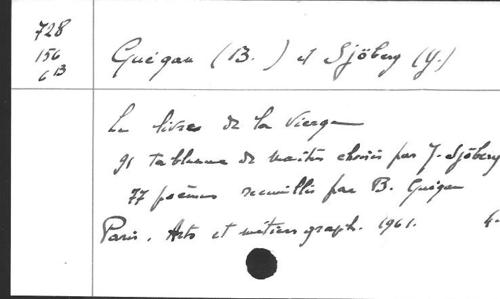 728
156
6 B
Guégan (B.) et Sjöberg (Y.)
Le livre de la Vierge
91 tableaux de maîtres choisis par Y. Sjöberg
77 poèmes recueillis par B. Guégan
Paris. Arts et métiers graph. 1961. 4-